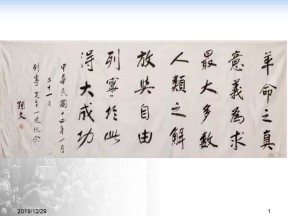 革命之真
意義為求
最大多數
人類之解
放與自由
列寧於此
得大成功
中華民國十四年一月
二十一日
列寧先生一週紀念
孫文
2019/12/29
1